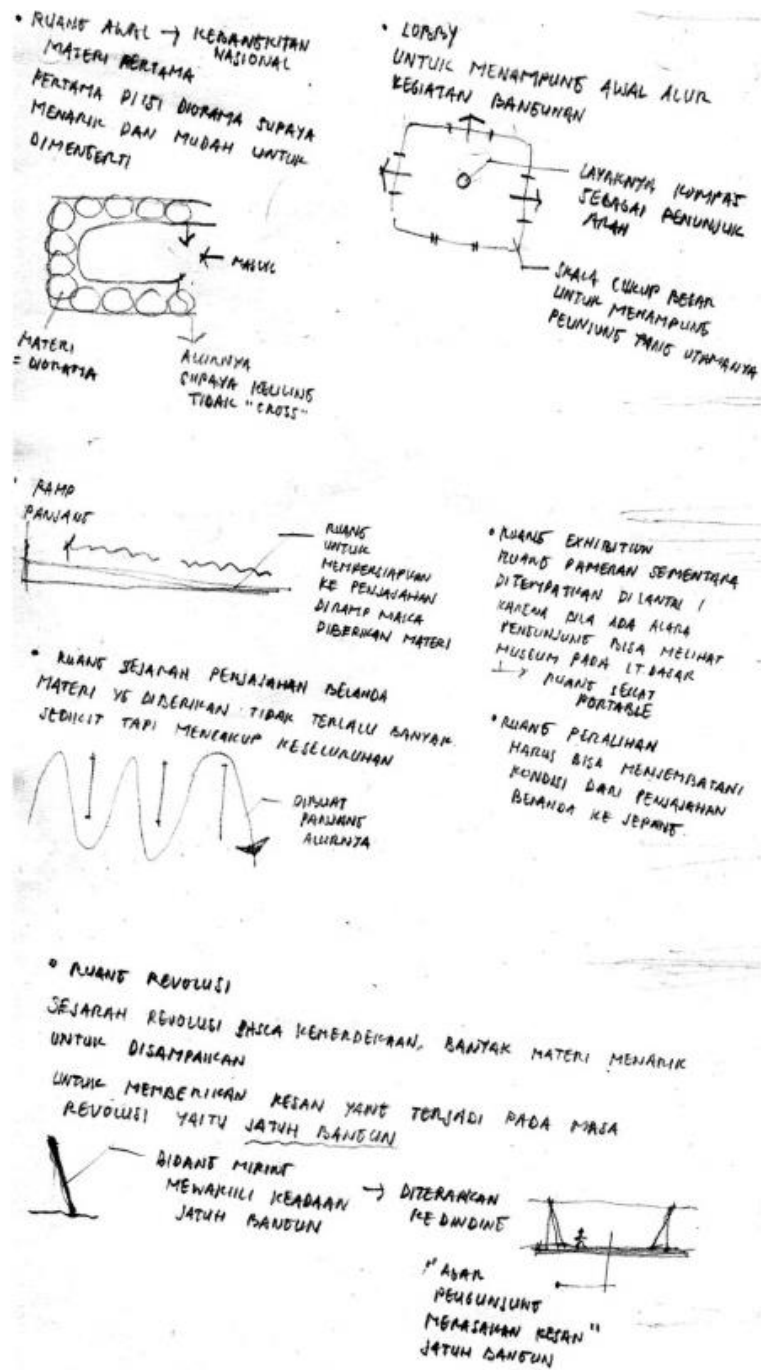 • RUANG AWAL → KEBANGKITAN
NASIONAL
MATERI PERTAMA
PERTAMA DIISI DIORAMA SUPAYA
MENARIK DAN MUDAH UNTUK
DIMENGERTI
MASUK
MATERI
= DIORAMA
ALURNYA
SUPAYA KELILING
TIDAK "CROSS"
• LOBBY
UNTUK MENAMPUNG AWAL ALUR
KEGIATAN BANGUNAN
LAYAKNYA KOMPAS
SEBAGAI PENUNJUK
ARAH
SKALA CUKUP BESAR
UNTUK MENAMPUNG
YANG UTAMANYA
RAMP
PANJANG
RUANG
UNTUK
MEMPERSIAPKAN
KE PENJAJAHAN
DIRAMP MAKA
DIBERIKAN MATERI
• RUANG SEJARAH PENJAJAHAN BELANDA
MATERI YG DIBERIKAN TIDAK TERLALU BANYAK
SEDIKIT TAPI MENCAKUP KESELURUHAN
DIBUAT
PANJANG
ALURNYA
• RUANG EXHIBITION
RUANG PAMERAN SEMENTARA
DITEMPATKAN DI LANTAI 1
KARENA BILA ADA ACARA
PENGUNJUNG BISA MELIHAT
MUSEUM PADA LT. DASAR
→ RUANG SEKAT
PORTABLE
• RUANG PERALIHAN
HARUS BISA MENJEMBATANI
KONDISI DARI PENJAJAHAN
BELANDA KE JEPANG
• RUANG REVOLUSI
SEJARAH REVOLUSI PASCA KEMERDEKAAN, BANYAK MATERI MENARIK
UNTUK DISAMPAIKAN
UNTUK MEMBERIKAN KESAN YANG TERJADI PADA MASA
REVOLUSI YAITU JATUH BANGUN
BIDANG MIRING
MEWAKILI KEADAAN
JATUH BANGUN
→ DITERAPKAN
KE DINDING
"AGAR
PENGUNJUNG
MERASAKAN KESAN"
JATUH BANGUN